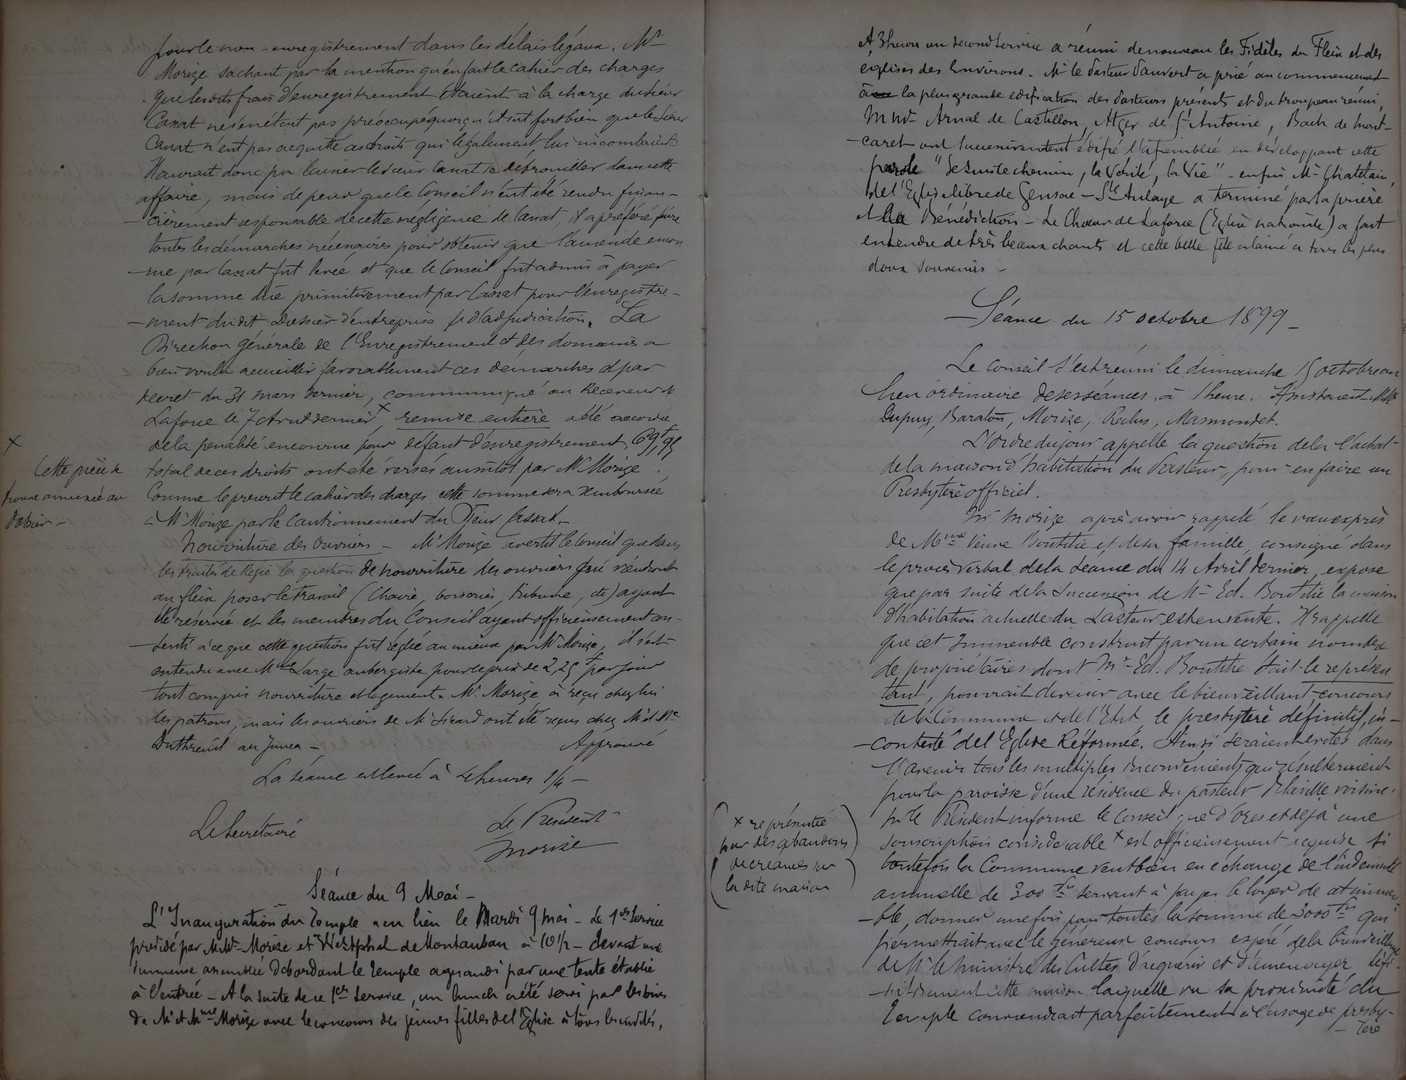 pour le non-enregistrement dans les délais légaux. Mr
Morize sachant par la mention qu'en fait le cahier des charges
que les dits frais d'enregistrement étaient à la charge du sieur
Cassat ne s'en étant pas préoccupé et sut fort bien que le sieur
Cassat n'ent pas acquitté ces droits qui légalement lui incombaient
Il aurait donc pu laisser le sieur Cassat se débrouiller dans cette
affaire, mais de peur que le Conseil n'ent été rendu finan-
-cièrement responsable de cette négligence de Cassat, il a préféré faire
toutes les démarches nécessaires pour obtenir que l'amende encou-
-rue par Cassat fut levée et que le Conseil fut admis à payer
la somme due primitivement par Cassat pour l'enregistre-
-ment du dit Dossier d'entreprise d'adjudication. La
Direction générale de l'Enregistrement et des domaines a
bien voulu accueillir favorablement ces démarches et par
décret du 31 mars dernier, communiqué au Receveur de
Laforce le dernier x, remise entière a été accordée
de la pénalité encourue pour défaut d'enregistrement 69f,95
total de ces droits ont été versés aussitôt par Mr Morize.
x
Cette pièce se
trouve annexée au
dossier -
Comme le prescrit le cahier des charges cette somme sera remboursée
à Mr Morize par le cautionnement du Sieur Cassat -
Nourriture des ouvriers - Mr Morize avertit le Conseil que dans
les traités de Régie la question de nourriture des ouvriers qui viendront
au Fleix poser le travail (Chaire, boiseries, tribune, etc) ayant
été réservée et les membres du Conseil ayant officieusement con-
-senti à ce que cette question fut réglée au mieux par Mr Morize, il s'est
entendu avec Mme Large aubergiste pour le prix de 2,25 f par jour
tout compris nourriture et logement. Mr Morize a reçu chez lui
les patrons, mais les ouvriers de Mr Sicard ont été reçus chez Mr et Mme
Duthreuil au Junca - Approuvé
La séance est levée à 4 heures 1/4 -
Le Secrétaire
Le Président
Morize
Séance du 9 Mai -
L'Inauguration du Temple a eu lieu le Mardi 9 mai - Le 1er Service
présidé par MMrs Morize et Westphal de Montauban à 10 1/2 - devant une
immense assemblée débordant le Temple agrandi par une tente établie
à l'entrée - A la suite de ce 1er Service, un lunch a été servi par les soins
de Mr et Mme Morize avec le concours des jeunes filles de l'Eglise à tous les invités,
A 3 heures un second Service a réuni de nouveau les Fidèles du Fleix et des
églises des Environs. Mr le Pasteur Dauvert a prié au commencement
à la plus grande édification des Pasteurs présents et du troupeau réuni,
MMrs Arnal de Castillon, Atger de St Antoine, Bach de Mont-
-caret ont successivement édifié l'assemblée en développant cette
parole "Je suis le chemin, la Vérité, la Vie" - enfin Mr Chatelain
de l'Eglise libre de Gensac - Ste Aulaye a terminé par la prière
et la Bénédiction - Le Chœur de Laforce (Eglise nationale) a fait
entendre de très beaux chants et cette belle fête a laissé à tous les plus
doux souvenirs -
Séance du 15 octobre 1899 -
Le Conseil s'est réuni le dimanche 15 octobre au
lieu ordinaire de ses séances à 1 heure. Assistaient MMrs
Dupuy, Baraton, Morize, Reclus, Masmondet.
L'Ordre du jour appelle la question de l'achat
de la maison d'habitation du Pasteur, pour en faire un
Presbytère officiel.
Mr Morize après avoir rappelé le vœu exprès
de Mme Veuve Boutitie et de sa famille, consigné dans
le procès verbal de la Séance du 14 Avril dernier, expose
que par suite de la Succession de Mr Ed. Boutitie la maison
d'habitation actuelle du Pasteur est en vente. Il rappelle
que cet Immeuble construit par un certain nombre
de propriétaires dont Mr Ed. Boutitie était le représen
tant, pouvait devenir avec le bienveillant concours
de la Commune et de l'Etat, le presbytère définitif, in-
-contesté de l'Eglise Réformée. Ainsi seraient évités dans
l'avenir tous les multiples inconvénients qui résulteraient
pour la paroisse d'une résidence du pasteur
Mr le Président informe le Conseil que d'ores et déjà une
souscription considérable x est officieusement acquise si
toutefois la Commune veut bien en échange de l'indemnité
annuelle de 300 frs servant à payer le loyer de cet immeu-
-ble, donner une fois pour toutes la somme de 3000 frs qui
permettrait avec le généreux concours espéré de la bienveillance
de Mr le Ministre des Cultes d'acquérir et d'aménager défi-
-nitivement cette maison laquelle vu sa proximité du
Temple conviendrait parfaitement à l'usage de presby-
- tère
x représentée
par des abandons
de créances sur
la dite maison